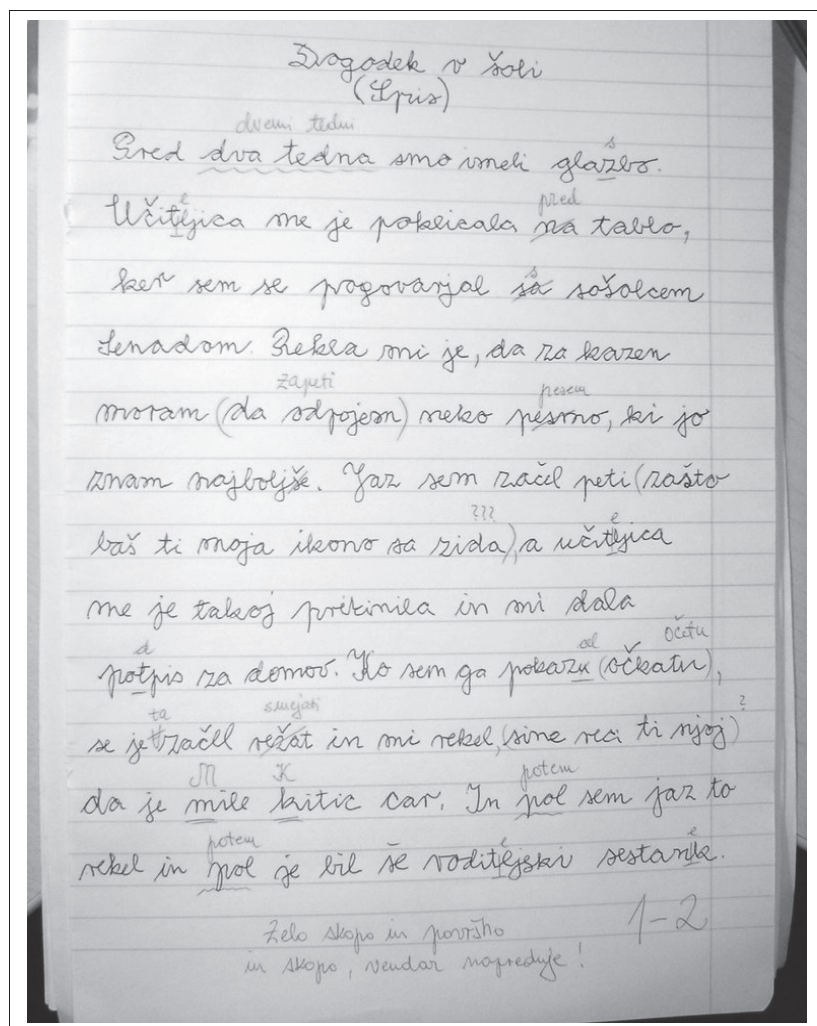 Dogodek v šoli
(Spis)
dvemi tedni
s
Pred dva tedna smo imeli glazbo.
e
pred
Učitljica me je poklicala na tablo,
s
ker sem se pogovarjal sa sošolcem
Senadom. Rekla mi je, da za kazen
zapeti
pesem
moram (da odpojem) neko pesmo, ki jo
znam najboljše. Jaz sem začel peti (zašto
???
e
baš ti moja ikono sa zida), a učitljica
me je takoj prekinila in mi dala
d
al
očetu
potpis za domov. Ko sem ga pokazu (očkatu),
ta
smejati
?
se je začel režat in mi rekel, (sine reci ti njoj)
M
K
potem
da je mile kitic car. In pol sem jaz to
potem
e
e
rekel in pol je bil še roditljski sestank.
1-2
Zelo skopo in površno
in skopo, vendar napreduje!